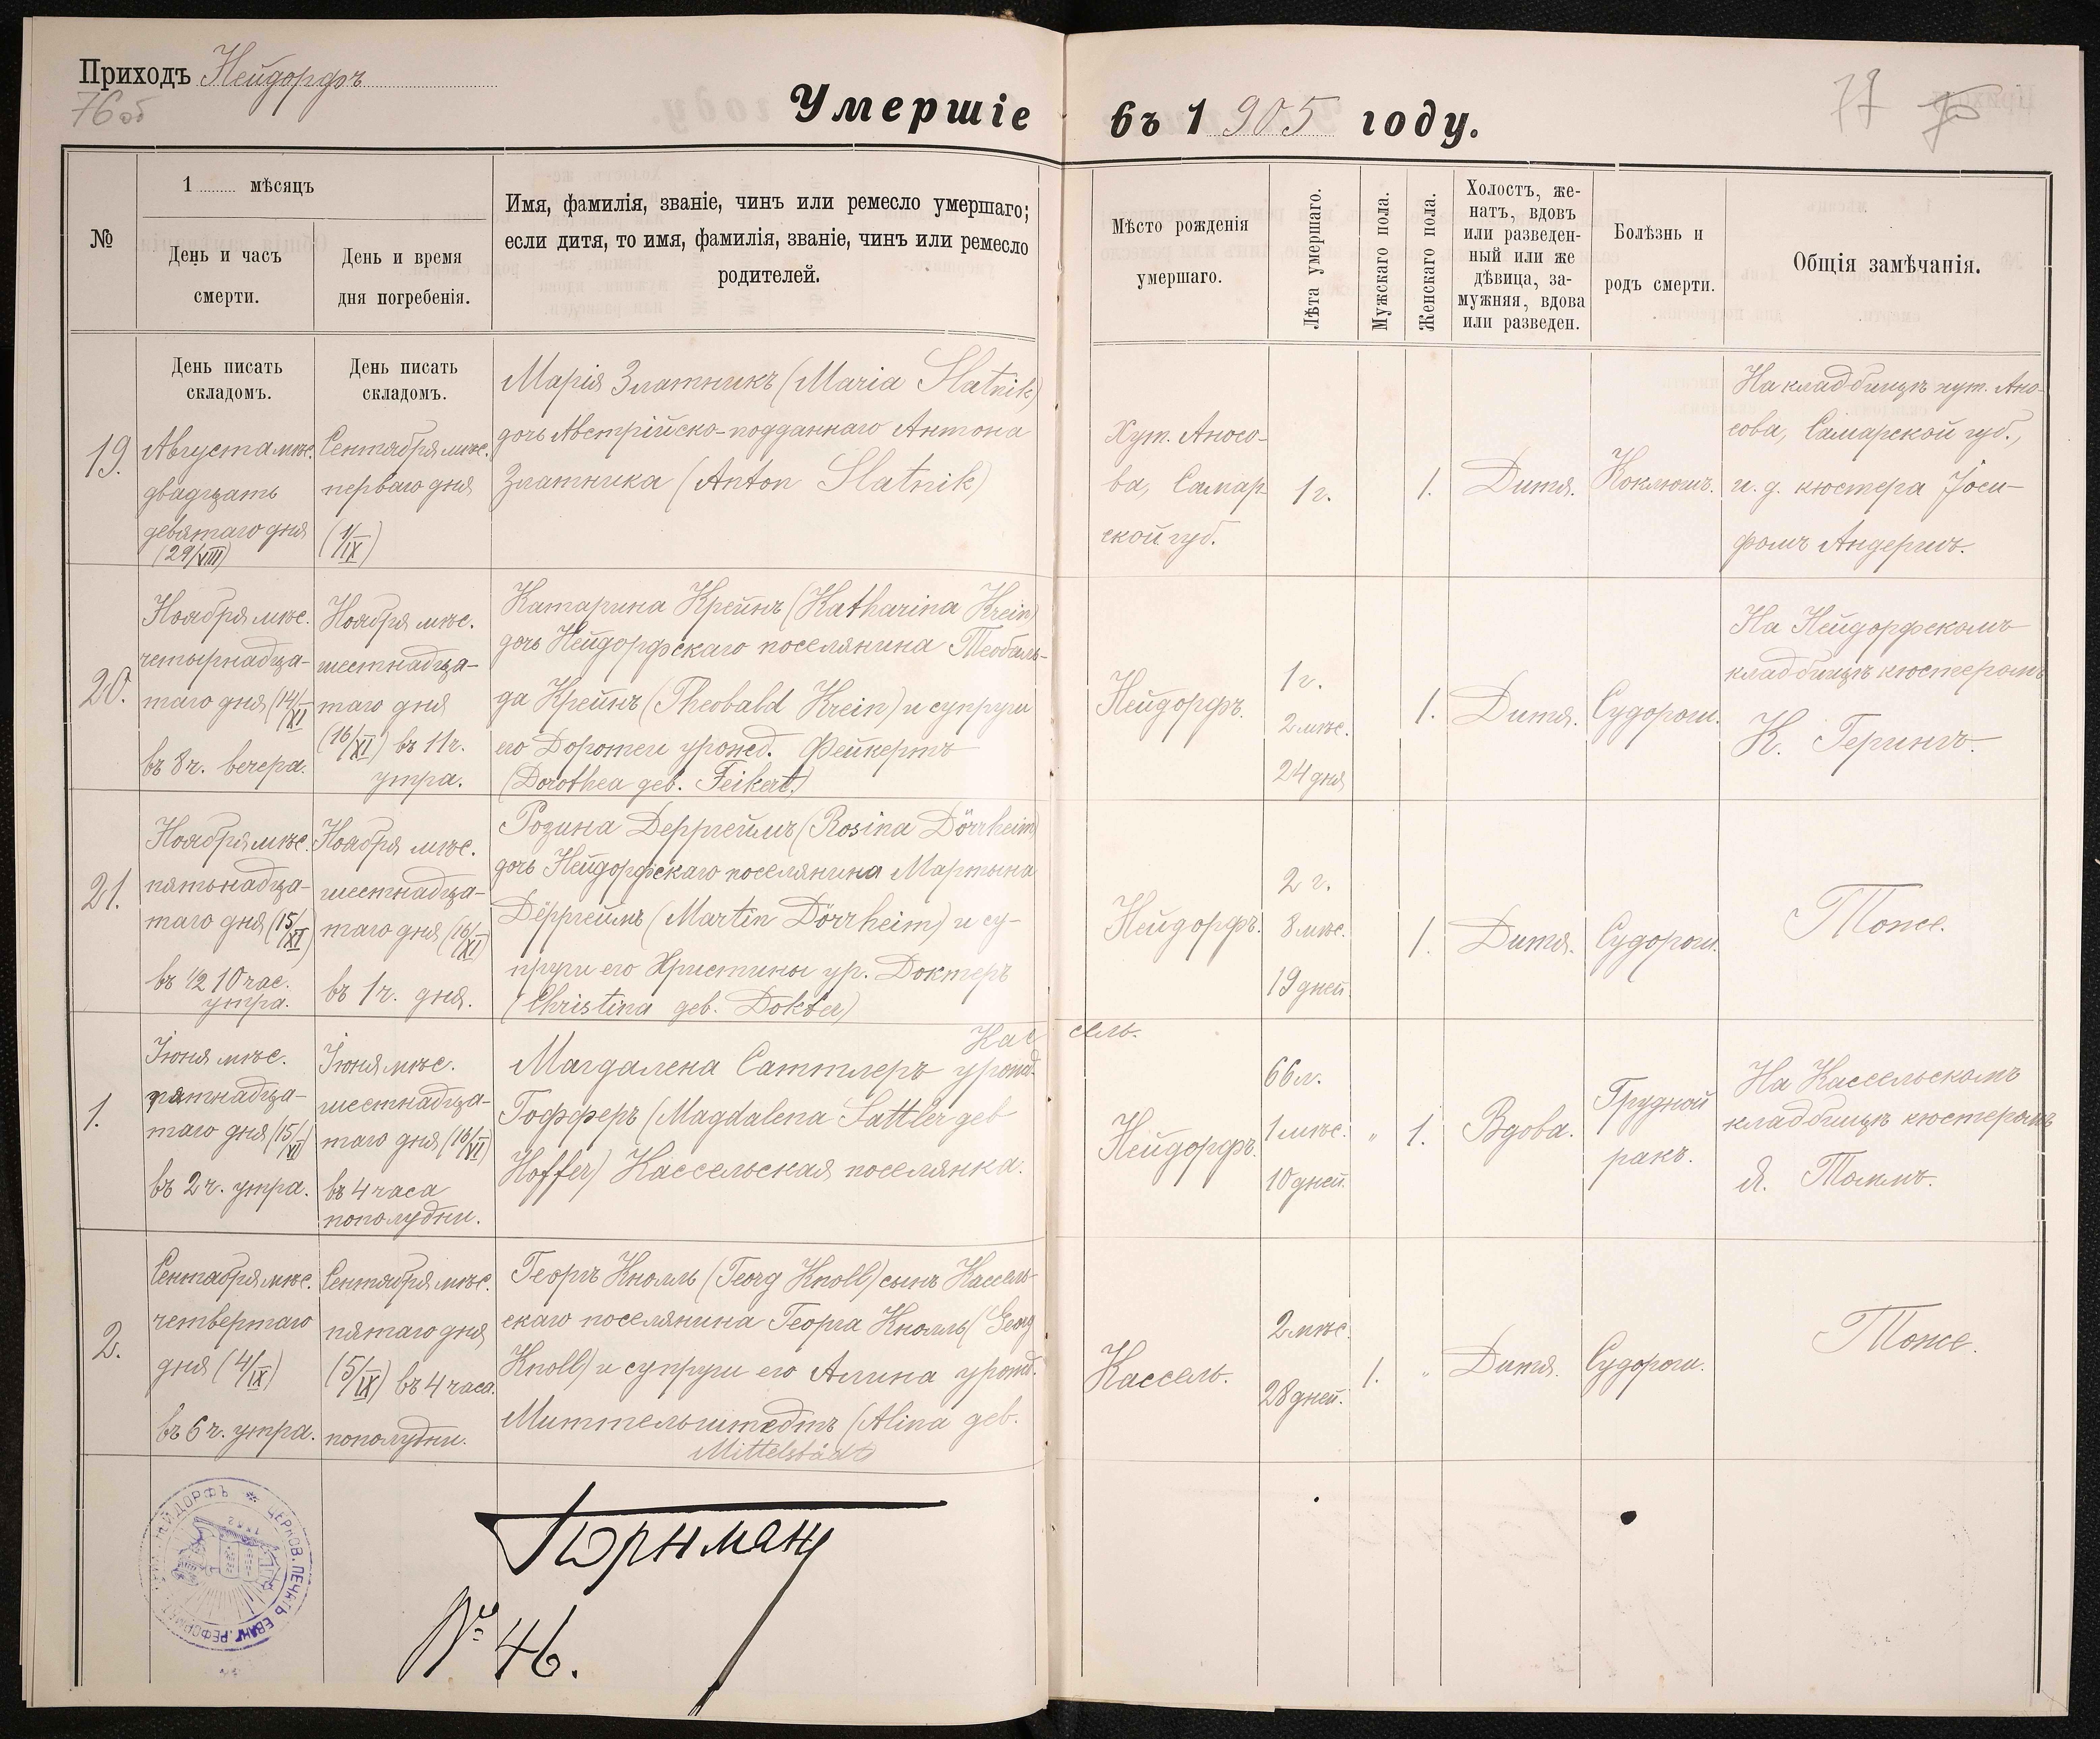 Приходъ Нейдорфъ
76 об
77
Умершіе въ 1905 году.
№
1 ........ мѣсяцъ
День и часъ
смерти.
День и время
дня погребенія.
Имя, фамилія, званіе, чинъ или ремесло умершаго;
если дитя, то имя, фамилія, званіе, чинъ или ремесло
родителей.
Мѣсто рожденія
умершаго.
Лѣта умершаго.
Мужскаго пола.
Женскаго пола.
Холостъ, же-
натъ, вдовъ
или разведен-
ный или же
дѣвица, за-
мужняя, вдова
или разведен.
Болѣзнь и
родъ смерти.
Общія замѣчанія.
День писать
складомъ.
День писать
складомъ.
19.
Августа мѣс.
двадцать
девятаго дня
(29/VIII)
Сентября мѣс.
перваго дня
(1/IX)
Марія Златникъ (Maria Slatnik)
дочь Австрійско-подданнаго Антона
Златника (Anton Slatnik)
Хут. Аносо-
ва, Самар-
ской губ.
1 г.
1.
Дитя.
Коклюшъ.
На кладбищѣ хут. Ано-
сова, Самарской губ.,
и. д. кюстера Іоси-
фомъ Андершъ.
20.
Ноября мѣс.
четырнадца-
таго дня (14/XI)
въ 8 ч. вечера.
Ноября мѣс.
шестнадца-
таго дня
(16/XI) въ 11 ч.
утра.
Катарина Крейнъ (Katharina Krein)
дочь Нейдорфскаго поселянина Теобаль-
да Крейнъ (Theobald Krein) и супруги
его Доротеи урожд. Фейкертъ
(Dorothea geb. Feikert)
Нейдорфъ.
1 г.
2 мѣс.
24 дня
1.
Дитя.
Судороги.
На Нейдорфскомъ
кладбищѣ кюстеромъ
К. Герингъ.
21.
Ноября мѣс.
пятьнадца-
таго дня (15/XI)
въ 1/2 10 час.
утра.
Ноября мѣс.
шестнадца-
таго дня (16/XI)
въ 1 ч. дня.
Розина Дерргеймъ (Rosina Dörrheim)
дочь Нейдорфскаго поселянина Мартына
Дёрргеймъ (Martin Dörrheim) и су-
пруги его Христины ур. Доктеръ
(Christina geb. Dokter)
Нейдорфъ.
2 г.
8 мѣс.
19 дней.
1.
Дитя.
Судороги.
Тоже.
Кассель.
1.
Іюня мѣс.
пятнадца-
таго дня (15/VI)
въ 2 ч. утра.
Іюня мѣс.
шестнадца-
таго дня (16/VI)
въ 4 часа
пополудни.
Магдалена Саттлеръ урожд.
Гофферъ (Magdalena Sattler geb
Hoffer) Кассельская поселянка.
Нейдорфъ.
66 л.
1 мѣс.
10 дней.
"
1.
Вдова.
Грудной
ракъ.
На Кассельскомъ
кладбищѣ кюстеромъ
Я. Томмъ.
2.
Сентября мѣс.
четвертаго
дня (4/IX)
въ 6 ч. утра.
Сентября мѣс.
пятаго дня
(5/IX) въ 4 часа.
пополудни.
Георгъ Кнолль (Georg Knoll) сынъ Кассель-
скаго поселянина Георга Кнолль (Georg
Knoll) и супруги его Алина урожд.
Миттельштедтъ (Alina geb.
Mittelstädt)
Кассель.
2 мѣс.
28 дней.
1.
"
Дитя.
Судороги.
Тоже.
ЦЕРКОВ. ПЕЧАТЬ ЕВАНГ. РЕФОРМ.
НЕЙДОРФЪ
№ 46.